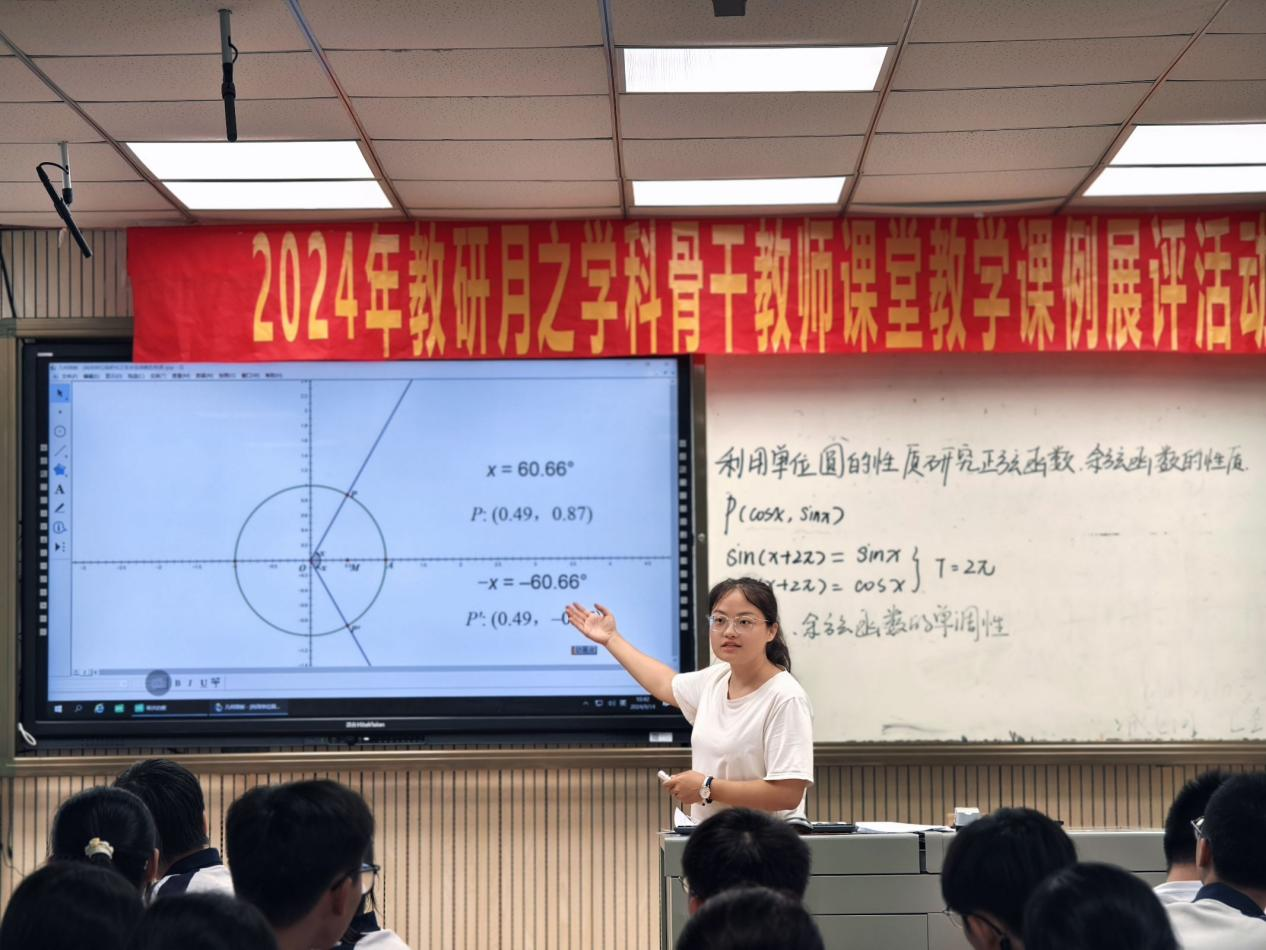 2024年教研月之学科骨干教师课堂教学课例展评活动
x = 60.66°
P: (0.49, 0.87)
−x = −60.66°
P': (0.49, −0
P
O
M
A
B I U
利用单位圆的性质研究正弦函数、余弦函数的性质.
P(cosx, sinx)
sin(x+2π) = sinx
(x+2π) = cosx } T=2π
、余弦函数的单调性